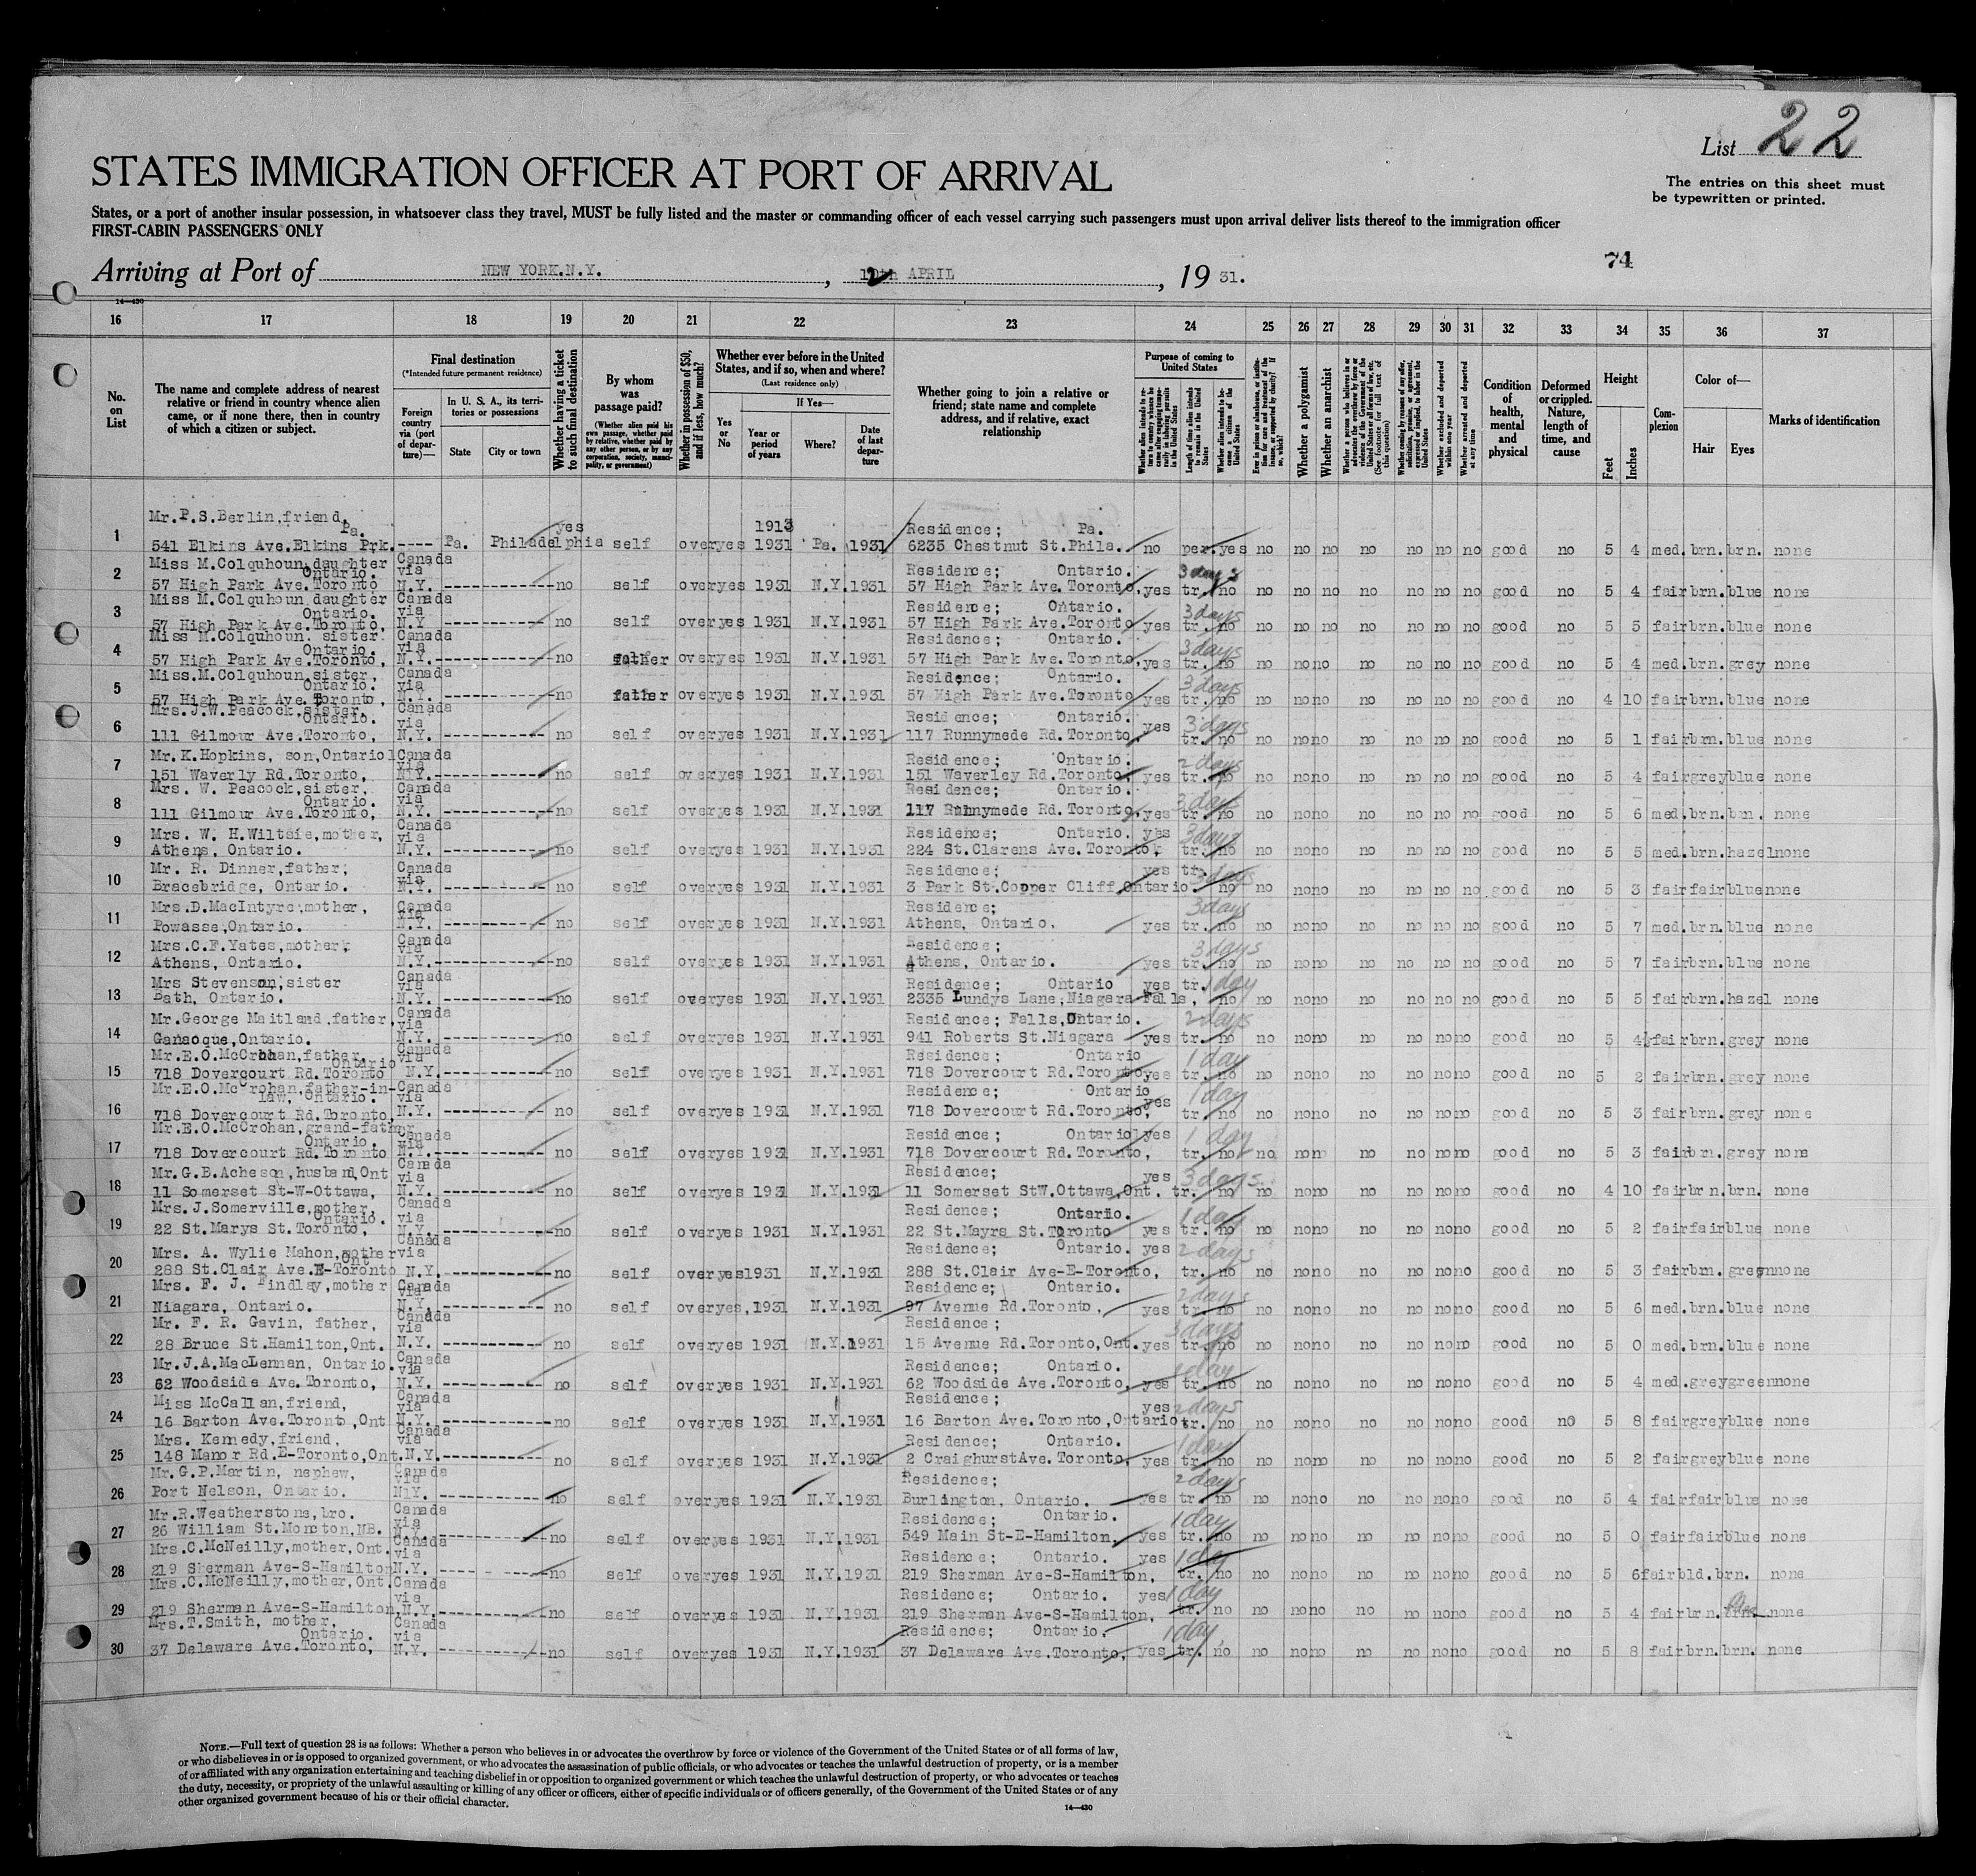 List 22
The entries on this sheet must
be typewritten or printed.
STATES IMMIGRATION OFFICER AT PORT OF ARRIVAL
States, or a port of another insular possession, in whatsoever class they travel, MUST be fully listed and the master or commanding officer of each vessel carrying such passengers must upon arrival deliver lists thereof to the immigration officer
FIRST-CABIN PASSENGERS ONLY
74
Arriving at Port of NEW YORK.N.Y. , APRIL , 19 31.
14—430
16 17 18 19 20 21 22 23 24 25 26 27 28 29 30 31 32 33 34 35 36 37
No. on List
The name and complete address of nearest relative or friend in country whence alien came, or if none there, then in country of which a citizen or subject.
Final destination
(*Intended future permanent residence)
Foreign country via (port of departure)—
In U. S. A., its territories or possessions
State
City or town
Whether having a ticket to such final destination
By whom was passage paid?
(Whether alien paid his own passage, whether paid by relative, whether paid by any other person, or by any corporation, society, municipality, or government)
Whether in possession of $50, and if less, how much?
Whether ever before in the United States, and if so, when and where?
(Last residence only)
Yes or No
If Yes—
Year or period of years
Where?
Date of last departure
Whether going to join a relative or friend; state name and complete address, and if relative, exact relationship
Purpose of coming to United States
Length of time alien intends to remain in the United States
Whether alien intends to become a citizen of the United States
Whether a polygamist
Whether an anarchist
Whether excluded and deported within one year
Whether arrested and deported at any time
Condition of health, mental and physical
Deformed or crippled. Nature, length of time, and cause
Height
Feet
Inches
Complexion
Color of—
Hair
Eyes
Marks of identification
1 Mr.P.S.Berlin,friend, Pa. yes 1913 Residence; Pa.
541 Elkins Ave.Elkins Prk. ---- Pa. Philadelphia self over yes 1931 Pa. 1931 6235 Chestnut St.Phila. no per. yes no no no no no no no good no 5 4 med. brn. brn. none
2 Miss M.Colquhoun,daughter Ontario. Canada via Residence; Ontario. 3 days
57 High Park Ave.Toronto N.Y. no self over yes 1931 N.Y. 1931 57 High Park Ave.Toronto, yes tr. no no no no no no no no good no 5 4 fair brn. blue none
3 Miss M.Colquhoun daughter Ontario. Canada via Residence; Ontario. 3 days
57 High Park Ave.Toronto, N.Y. no self over yes 1931 N.Y. 1931 57 High Park Ave.Toronto yes tr. no no no no no no no no good no 5 5 fair brn. blue none
4 Miss M.Colquhoun. sister. Ontario. Canada via Residence; Ontario. 3 days
57 High Park Ave.Toronto, N.Y. no father over yes 1931 N.Y. 1931 57 High Park Ave.Toronto, yes tr. no no no no no no no no good no 5 4 med. brn. grey none
5 Miss.M.Colquhoun,sister, Ontario. Canada via Residence; Ontario. 3 days
57 High Park Ave.Toronto, N.Y. no father over yes 1931 N.Y. 1931 57 High Park Ave.Toronto yes tr. no no no no no no no no good no 4 10 fair brn. blue none
6 Mrs.J.W.Peacock,sister, Ontario. Canada via Residence; Ontario. yes 3 days
111 Gilmour Ave.Toronto, N.Y. no self over yes 1931 N.Y. 1931 117 Runnymede Rd.Toronto, tr. no no no no no no no no good no 5 1 fair brn. blue none
7 Mr.K.Hopkins, son,Ontario Canada via Residence; Ontario. 2 days
151 Waverly Rd.Toronto, N.Y. no self over yes 1931 N.Y. 1931 151 Waverley Rd.Toronto, yes tr. no no no no no no no no good no 5 4 fair grey blue none
8 Mrs. W. Peacock,sister, Ontario. Canada via Residence; Ontario. 3 days
111 Gilmour Ave.Toronto, N.Y. no self over yes 1931 N.Y. 1931 117 Runnymede Rd. Toronto, yes tr. no no no no no no no no good no 5 6 med. brn. brn. none
9 Mrs. W. H.Wiltsie,mother, Canada via Residence; Ontario. yes 3 days
Athens, Ontario. N.Y. no self over yes 1931 N.Y. 1931 224 St.Clarens Ave.Toronto tr. no no no no no no no no good no 5 5 med. brn. hazel none
10 Mr. R. Dinner,father; Canada via Residence; yes tr. 3 days
Bracebridge, Ontario. N.Y. no self over yes 1931 N.Y. 1931 3 Park St.Copper Cliff,Ontario. no no no no no no no no good no 5 3 fair fair blue none
11 Mrs.D.MacIntyre,mother, Canada via Residence; 3 days
Powasse,Ontario. N.Y. no self over yes 1931 N.Y. 1931 Athens, Ontario. yes tr. no no no no no no no no good no 5 7 med. brn. blue none
12 Mrs.C.F.Yates,mother, Canada via Residence; 3 days
Athens, Ontario. N.Y. no self over yes 1931 N.Y. 1931 Athens, Ontario. yes tr. no no no no no no no no good no 5 7 fair brn. blue none
13 Mrs Stevenson,sister Canada via Residence; Ontario yes tr. 1 day
Bath, Ontario. N.Y. no self over yes 1931 N.Y. 1931 2335 Lundys Lane,Niagara Falls, no no no no no no no no good no 5 5 fair brn. hazel none
14 Mr.George Maitland,father, Canada via Residence; Falls,Ontario. 2 days
Ganaoque,Ontario. N.Y. no self over yes 1931 N.Y. 1931 941 Roberts St.Niagara yes tr. no no no no no no no no good no 5 4½ fair brn. grey none
15 Mr.E.O.McCrohan,father, Ontario Canada via Residence; Ontario 1 day
718 Dovercourt Rd.Toronto N.Y. no self over yes 1931 N.Y. 1931 718 Dovercourt Rd.Toronto yes tr. no no no no no no no no good no 5 2 fair brn. grey none
16 Mr.E.O.McCrohan,father-in-law, Ontario. Canada via Residence; Ontario yes 1 day
718 Dovercourt Rd.Toronto N.Y. no self over yes 1931 N.Y. 1931 718 Dovercourt Rd.Toronto, tr. no no no no no no no no good no 5 3 fair brn. grey none
17 Mr.E.O.McCrohan,grand-father Ontario. Canada via Residence; Ontario yes 1 day
718 Dovercourt Rd.Toronto N.Y. no self over yes 1931 N.Y. 1931 718 Dovercourt Rd.Toronto, tr. no no no no no no no no good no 5 3 fair brn. grey none
18 Mr.G.B.Acheson,husband,Ont Canada via Residence; yes 3 days.
11 Somerset St-W-Ottawa, N.Y. no self over yes 1931 N.Y. 1931 11 Somerset StW.Ottawa,Ont. tr. no no no no no no no no good no 4 10 fair brn. brn. none
19 Mrs.J.Somerville,mother, Ontario. Canada via Residence; Ontario. 1 day
22 St.Marys St.Toronto, N.Y. no self over yes 1931 N.Y. 1931 22 St.Mayrs St.Toronto yes tr. no no no no no no no no good no 5 2 fair fair blue none
20 Mrs. A. Wylie Mahon,mother Ont Canada via Residence; Ontario. yes 2 days
288 St.Clair Ave.E-Toronto N.Y. no self over yes 1931 N.Y. 1931 288 St.Clair Ave-E-Toronto, tr. no no no no no no no no good no 5 3 fair brn. green none
21 Mrs. F. J. Findlay,mother Canada via Residence; Ontario. 2 days
Niagara, Ontario. N.Y. no self over yes, 1931 N.Y. 1931 97 Avenue Rd.Toronto, yes tr. no no no no no no no no good no 5 6 med. brn. blue none
22 Mr. F. R. Gavin, father, Canada via Residence; 3 days
28 Bruce St.Hamilton,Ont. N.Y. no self over yes 1931 N.Y. 1931 15 Avenue Rd.Toronto,Ont. yes tr. no no no no no no no no good no 5 0 med. brn. blue none
23 Mr.J.A.MacLennan, Ontario. Canada via Residence; Ontario. 1 day
62 Woodside Ave.Toronto, N.Y. no self over yes 1931 N.Y. 1931 62 Woodside Ave.Toronto, yes tr. no no no no no no no no good no 5 4 med. grey green none
24 Miss McCallan,friend, Canada via Residence; yes 2 days
16 Barton Ave.Toronto,Ont N.Y. no self over yes 1931 N.Y. 1931 16 Barton Ave.Toronto,Ontario. tr. no no no no no no no no good no 5 8 fair grey blue none
25 Mrs. Kennedy,friend, Canada via Residence; Ontario. 1 day
148 Manor Rd.E-Toronto,Ont. N.Y. no self over yes 1931 N.Y. 1931 2 CraighurstAve.Toronto, yes tr. no no no no no no no no good no 5 2 fair grey blue none
26 Mr.G.P.Martin, nephew, Canada via Residence; 2 days
Port Nelson, Ontario. N.Y. no self over yes 1931 N.Y. 1931 Burlington, Ontario. yes tr. no no no no no no no no good no 5 4 fair fair blue none
27 Mr.R.Weatherstone,bro. Canada via Residence; Ontario. 1 day
26 William St.Moncton,NB. N.Y. no self over yes 1931 N.Y. 1931 549 Main St-E-Hamilton, yes tr. no no no no no no no no good no 5 0 fair fair blue none
28 Mrs.C.McNeilly,mother,Ont. Canada via Residence; Ontario. yes 1 day
219 Sherman Ave-S-Hamilton N.Y. no self over yes 1931 N.Y. 1931 219 Sherman Ave-S-Hamilton, tr. no no no no no no no no good no 5 6 fair bld. brn. none
29 Mrs.C.McNeilly,mother,Ont. Canada via Residence; Ontario. yes 1 day
219 Sherman Ave-S-Hamilton, N.Y. no self over yes 1931 N.Y. 1931 219 Sherman Ave-S-Hamilton, tr. no no no no no no no no good no 5 4 fair brn. none
30 Mrs.T.Smith, mother, Ontario. Canada via Residence; Ontario. 1 day
37 Delaware Ave.Toronto, N.Y. no self over yes 1931 N.Y. 1931 37 Delaware Ave.Toronto, yes tr. no no no no no no no no good no 5 8 fair brn. brn. none
NOTE.—Full text of question 28 is as follows: Whether a person who believes in or advocates the overthrow by force or violence of the Government of the United States or of all forms of law,
or who disbelieves in or is opposed to organized government, or who advocates the assassination of public officials, or who advocates or teaches the unlawful destruction of property, or is a member
of or affiliated with any organization entertaining and teaching disbelief in or opposition to organized government or which teaches the unlawful destruction of property, or who advocates or teaches
the duty, necessity, or propriety of the unlawful assaulting or killing of any officer or officers, either of specific individuals or of officers generally, of the Government of the United States or of any
other organized government because of his or their official character.
14—430